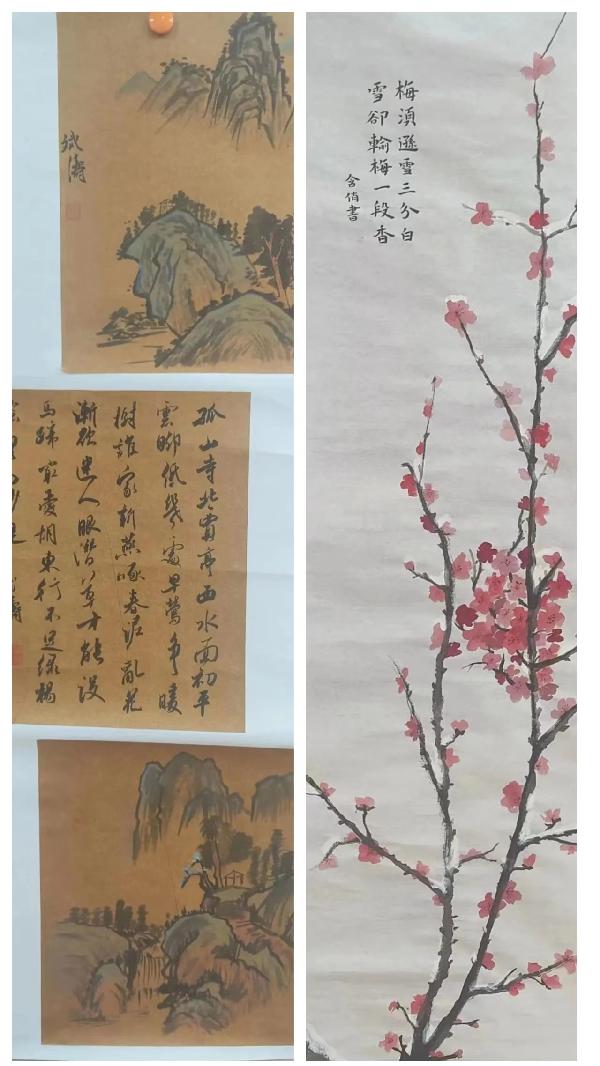 斌濤
孤山寺北賈亭西水面初平
雲腳低幾處早鶯爭暖
樹誰家新燕啄春泥亂花
漸欲迷人眼淺草才能沒
馬蹄最愛湖東行不足綠楊
梅湏遜雪三分白
雪卻輸梅一段香
含俏書